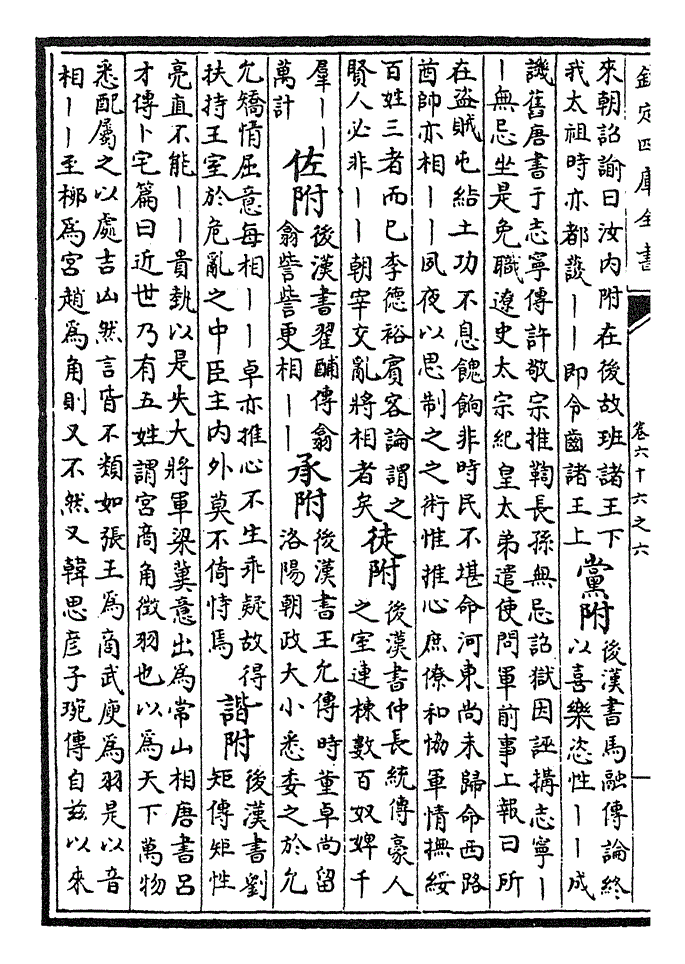 欽定四庫全書
卷六十六之六
來朝詔諭曰汝内附在後故班諸王下
我太祖時亦都燚｜｜即令齒諸王上
黨附
後漢書馬融傳論終
以喜樂恣性｜｜成
譏舊唐書于志寧傳許敬宗推鞫長孫無忌詔獄因誣搆志寧｜
｜無忌坐是免職遼史太宗紀皇太弟遣使問軍前事上報曰所
在盗賊屯結土功不息餽餉非時民不堪命河東尚未歸命西路
酋帥亦相｜｜夙夜以思制之之術惟推心庶僚和協軍情撫綏
百姓三者而已李德裕賓客論謂之
賢人必非｜｜朝宰交亂將相者矣
徒附
後漢書仲長統傳豪人
之室連棟數百奴婢千
羣｜｜
萬計
佐附
後漢書翟酺傳翕
翕訾訾更相｜｜
承附
後漢書王允傳時董卓尚留
洛陽朝政大小悉委之於允
允矯情屈意每相｜｜卓亦推心不生乖疑故得
扶持王室於危亂之中臣主内外莫不倚恃焉
諧附
後漢書劉
矩傳矩性
亮直不能｜｜貴埶以是失大將軍梁冀意出為常山相唐書吕
才傳卜宅篇曰近世乃有五姓謂宫商角徵羽也以為天下萬物
悉配屬之以處吉山然言皆不類如張王為商武庾為羽是以音
相｜｜至栁為宫趙為角則又不然又韓思彦子琬傳自兹以來